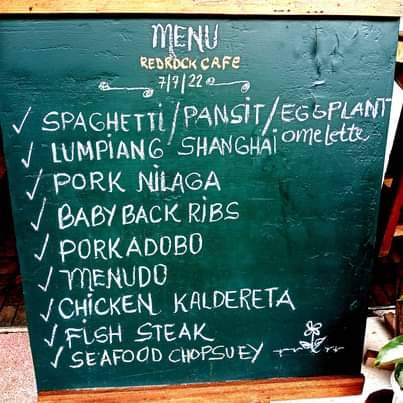 MENU
REDROCK CAFE
7/9/22
✓ SPAGHETTI/PANSIT/EGGPLANT
omelette
✓ LUMPIANG SHANGHAI
✓ PORK NILAGA
✓ BABY BACK RIBS
✓ PORK ADOBO
✓ MENUDO
✓ CHICKEN KALDERETA
✓ FISH STEAK
✓ SEAFOOD CHOPSUEY